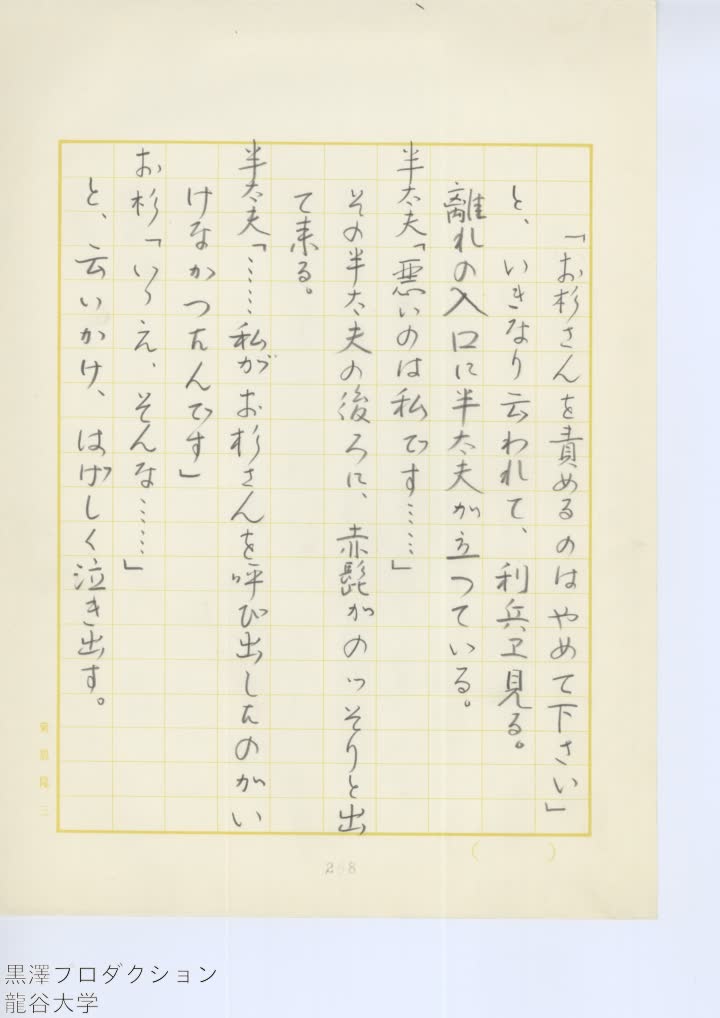 「お杉さんを責めるのはやめて下さい」
と、いきなり云われて、利兵卫見る。
離れの入口に半太夫が立つている。
半太夫「悪いのは私です……」
その半太夫の後ろに、赤髭がのッそりと出
て来る。
半太夫「……私がお杉さんを呼び出したのがい
けなかつたんです」
お杉「いゝえ、そんな……」
と、云いかけ、はげしく泣き出す。
(　　)
268
黒澤プロダクション
龍谷大学